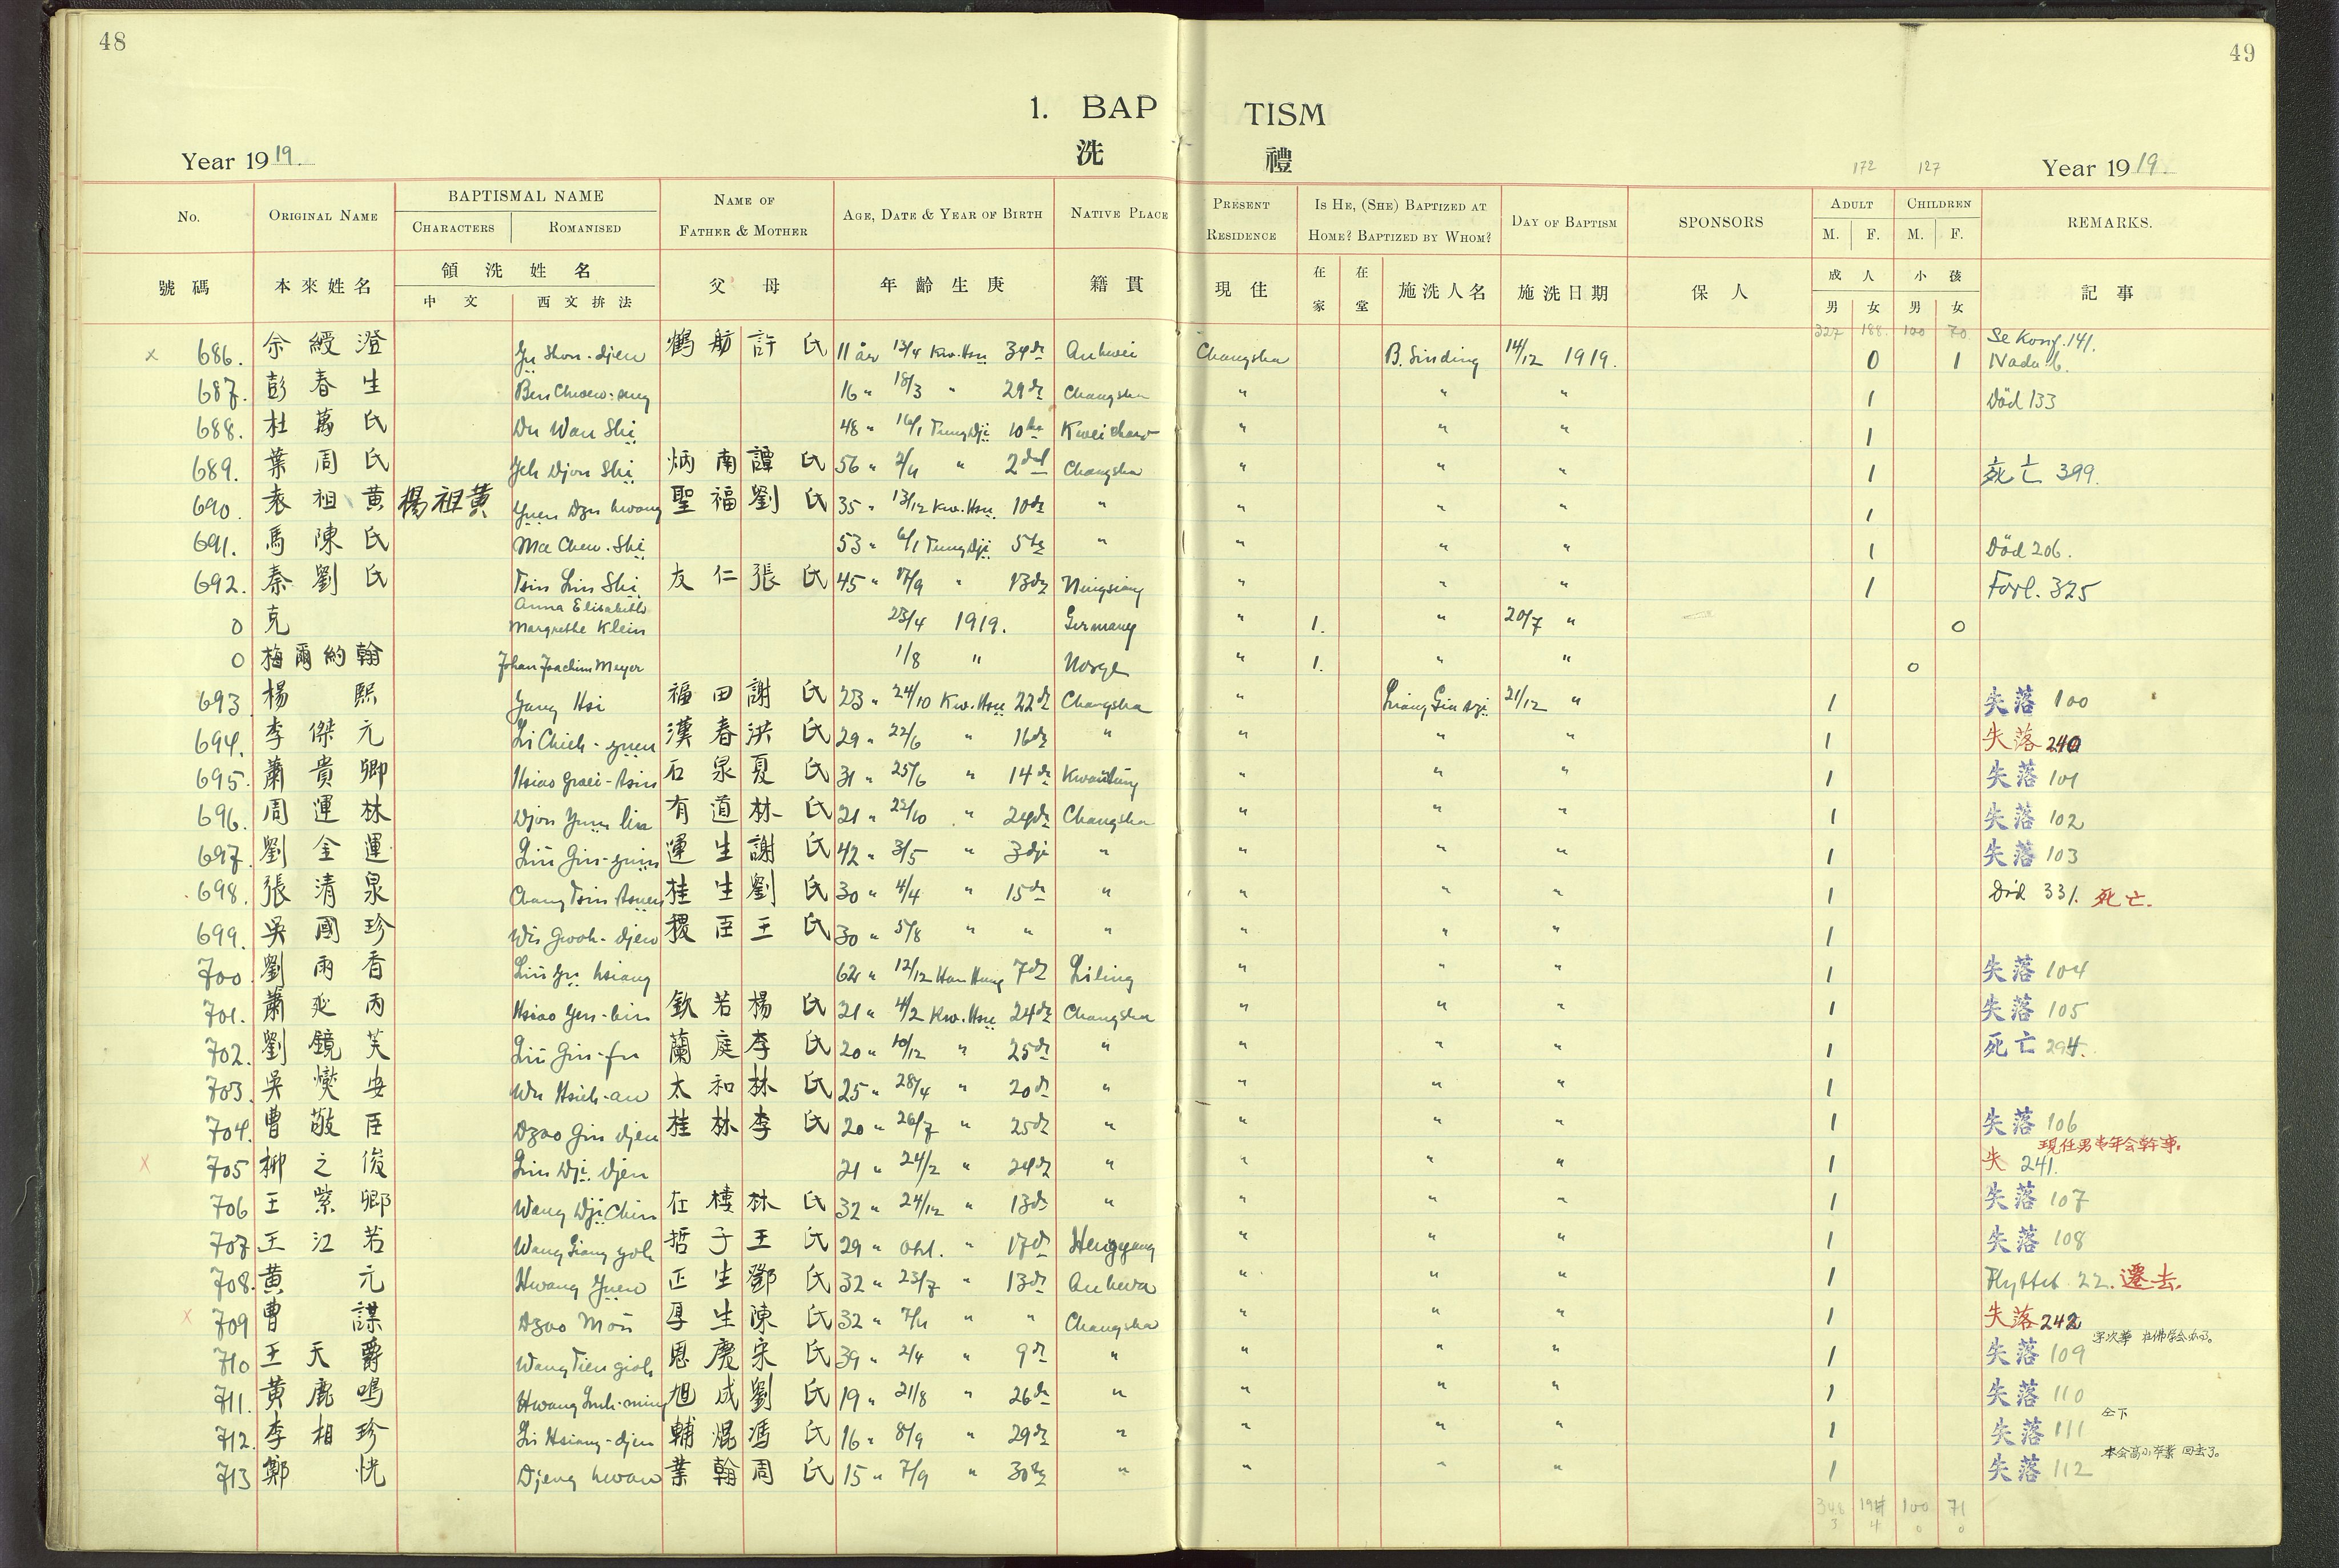 48
49
1. BAP TISM
洗 禮
Year 1919.
172 127
Year 1919.
No. ORIGINAL NAME BAPTISMAL NAME CHARACTERS ROMANISED NAME OF FATHER & MOTHER AGE, DATE & YEAR OF BIRTH NATIVE PLACE PRESENT RESIDENCE IS HE, (SHE) BAPTIZED AT HOME? BAPTIZED BY WHOM? DAY OF BAPTISM SPONSORS ADULT M. F. CHILDREN M. F. REMARKS.
號碼 本來姓名 領洗姓名 中文 西文拚法 父母 年齡生庚 籍貫 現住 在家 在堂 施洗人名 施洗日期 保人 成人 男 女 小孩 男 女 記事
327 188 100 70
x 686. 余綬澄 Yu Shou-djen 鶴舫 許氏 11 år 13/4 Kw.Hsu 34 Anhwei Changsha B. Sinding 14/12 1919. 0 1 Se Konf. 141.
687. 彭春生 16 " 18/3 " 29 Changsha " " " 1 Död 133
688. 杜萬氏 Du Wan Shi 48 " 16/1 Tung Dji 10 Kweichow " " " 1
689. 葉周氏 Yeh Djou Shi 炳南 譚氏 56 " " 2 Changsha " " " 1 死亡 399.
690. 袁祖黄 楊祖黄 Yuen Dzu hwang 聖福 劉氏 35 " 13/12 Kw.Hsu 10 " " " " 1
691. 馬陳氏 Ma Chen-Shi 53 " 6/1 Tung Dji 5 " " " " 1 Död 206.
692. 秦劉氏 Tsin Liu Shi 友仁 張氏 45 " 17/9 " 13 Ningsiang " " " 1 Forl. 325
0 克 Anna Elisabeth Margrethe Klein 23/4 1919. Germany " 1. " 20/7 " 0
0 梅爾約翰 Johan Joachim Meyer 1/8 " Norge " 1. " " 0
693 楊熙 Yang Hsi 福田 謝氏 23 " 24/10 Kw.Hsu 22 Changsha " 21/12 " 1 失落 100
694. 李傑元 Li Chieh-yuen 漢春 洪氏 29 " 22/6 " 16 " " " " 1 失落 240
695. 蕭貴卿 石泉 夏氏 31 " 25/6 " 14 Kwantung " " " 1 失落 101
696. 周運林 Djou Yuin lin 有道 林氏 21 " 22/10 " 24 Changsha " " " 1 失落 102
697. 劉金運 Liu Gin-yuin 運生 謝氏 42 " 3/5 " 3 " " " " 1 失落 103
698. 張清泉 桂生 劉氏 30 " 4/4 " 15 " " " " 1 Död 331. 死亡.
699. 吳國珍 Wu Gwoh-djen 臣 王氏 30 " 5/8 " " " " " " 1
700. 劉雨香 Liu Yu hsiang 62 " 12/12 7 Liling " " " 1 失落 104
701. 蕭延丙 Hsiao Yen-bin 欽若 楊氏 21 " 4/2 Kw.Hsu 24 Changsha " " " 1 失落 105
702. 劉鏡芙 Liu Gin-fu 蘭庭 李氏 20 " 10/12 " 25 " " " " 1 死亡 294.
703. 吳燮安 Wu Hsieh-an 太和 林氏 25 " 28/4 " 20 " " " " 1
704. 曹敬臣 Dzao Gin djen 桂林 李氏 20 " 26/7 " 25 " " " " 1 失落 106
現任男青年会幹事。
x 705 柳之俊 21 " 24/2 " 24 " " " " 1 失 241.
706 王紫卿 Wang Dji Chin 林氏 32 " 24/12 " 13 " " " " 1 失落 107
707 王江若 Wang Giang yoh 哲子 王氏 29 " " 17 Hengyang " " " 1 失落 108
708. 黄元 Hwang Yuen 正生 鄧氏 32 " 23/7 " 13 Anhwa " " " 1 Flyttet 22. 遷去.
x 709 曹謀 Dzao Mou 厚生 陳氏 32 " " " Changsha " " " 1 失落 242
710 王天爵 Wang Tien gioh 恩慶 宋氏 39 " 2/4 " 9 " " " " 1 失落 109
711. 黄鹿鳴 旭成 劉氏 19 " 21/8 " 26 " " " " 1 失落 110
仝下
712. 李相珍 Li Hsiang-djen 輔焜 馮氏 16 " 8/9 " 29 " " " " 1 失落 111
本会高小卒業 回去了。
713 鄭恍 Djeng hwan 業翰 周氏 15 " 7/9 " 30 " " " " 1 失落 112
348 194 100 71
3 4 0 0